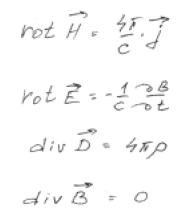 rot H⃗ = 4π/c · j⃗
rot E⃗ = -1/c ∂B/∂t
div D⃗ = 4πρ
div B⃗ = 0